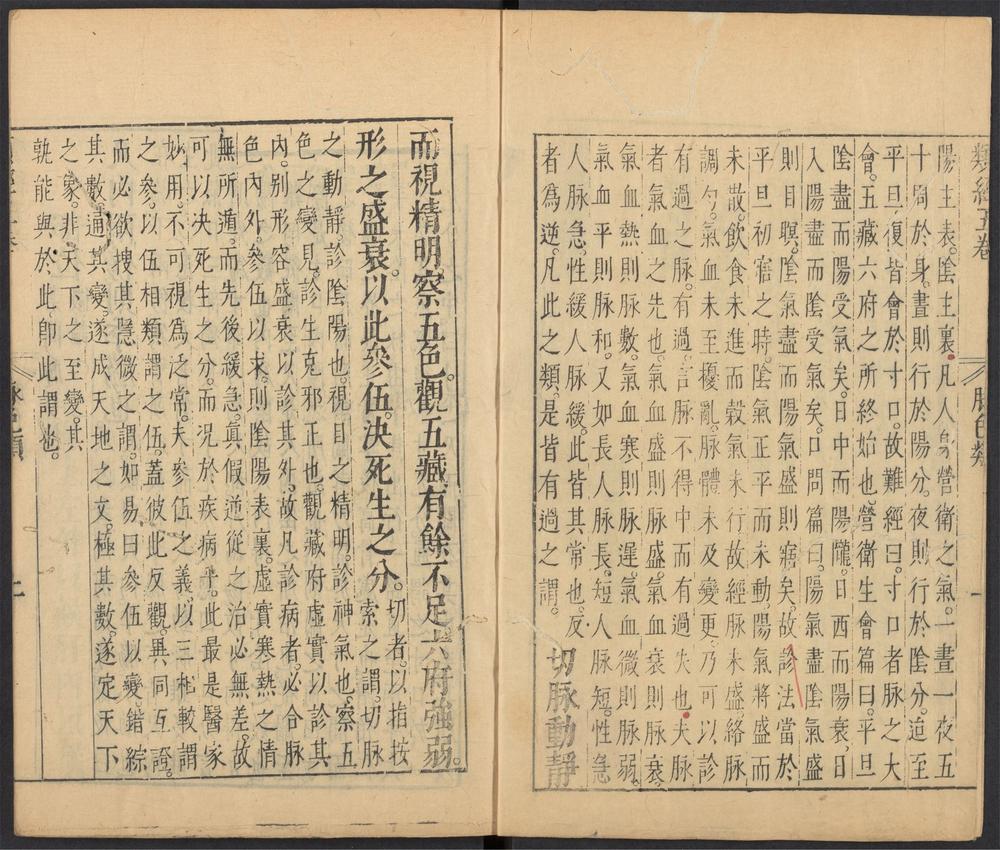 類經五卷
脉色類
一
陽主表。陰主裏。凡人身營衛之氣。一晝一夜五
十周於身。晝則行於陽分。夜則行於陰分。迨至
平旦。復皆會於寸口。故難經曰。寸口者脉之大
會。五藏六府之所終始也。營衛生會篇曰。平旦
陰盡而陽受氣矣。日中而陽隴。日西而陽衰。日
入陽盡而陰受氣矣。口問篇曰。陽氣盡陰氣盛
則目瞑。陰氣盡而陽氣盛則寤矣。故診法當於
平旦初寤之時。陰氣正平而未動。陽氣將盛而
未散。飲食未進而穀氣未行。故經脉未盛。絡脉
調勻。氣血未至擾亂。脉體未及變更。乃可以診
有過之脉。有過。言脉不得中而有過失也。夫脉
者氣血之先也。氣血盛則脉盛。氣血衰則脉衰。
氣血熱則脉數。氣血寒則脉遲。氣血微則脉弱。
氣血平則脉和。又如長人脉長。短人脉短。性急
人脉急。性緩人脉緩。此皆其常也。反
者為逆。凡此之類。是皆有過之謂。 切脉動靜
而視精明。察五色。觀五藏有餘不足。六府強弱。
形之盛衰。以此參伍。決死生之分。 切者。以指按索之謂。切脉
之動靜。診陰陽也。視目之精明。診神氣也。察五
色之變見。診生克邪正也。觀藏府虛實以診其
內。別形容盛衰以診其外。故凡診病者。必合脉
色內外。參伍以求。則陰陽表裏。虛實寒熱之情
無所遁。而先後緩急。真假逆從之治必無差。故
可以决死生之分。而况於疾病乎。此最是醫家
妙用。不可視爲泛常。夫參伍之義。以三相較謂
之參。以伍相類謂之伍。蓋彼此反觀。異同互證。
而必欲搜其隱微之謂。如易曰參伍以變。錯綜
其數。通其變。遂成天地之文。極其數。遂定天下
之象。非天下之至變。其
孰能與於此。卽此謂也。
脉色類